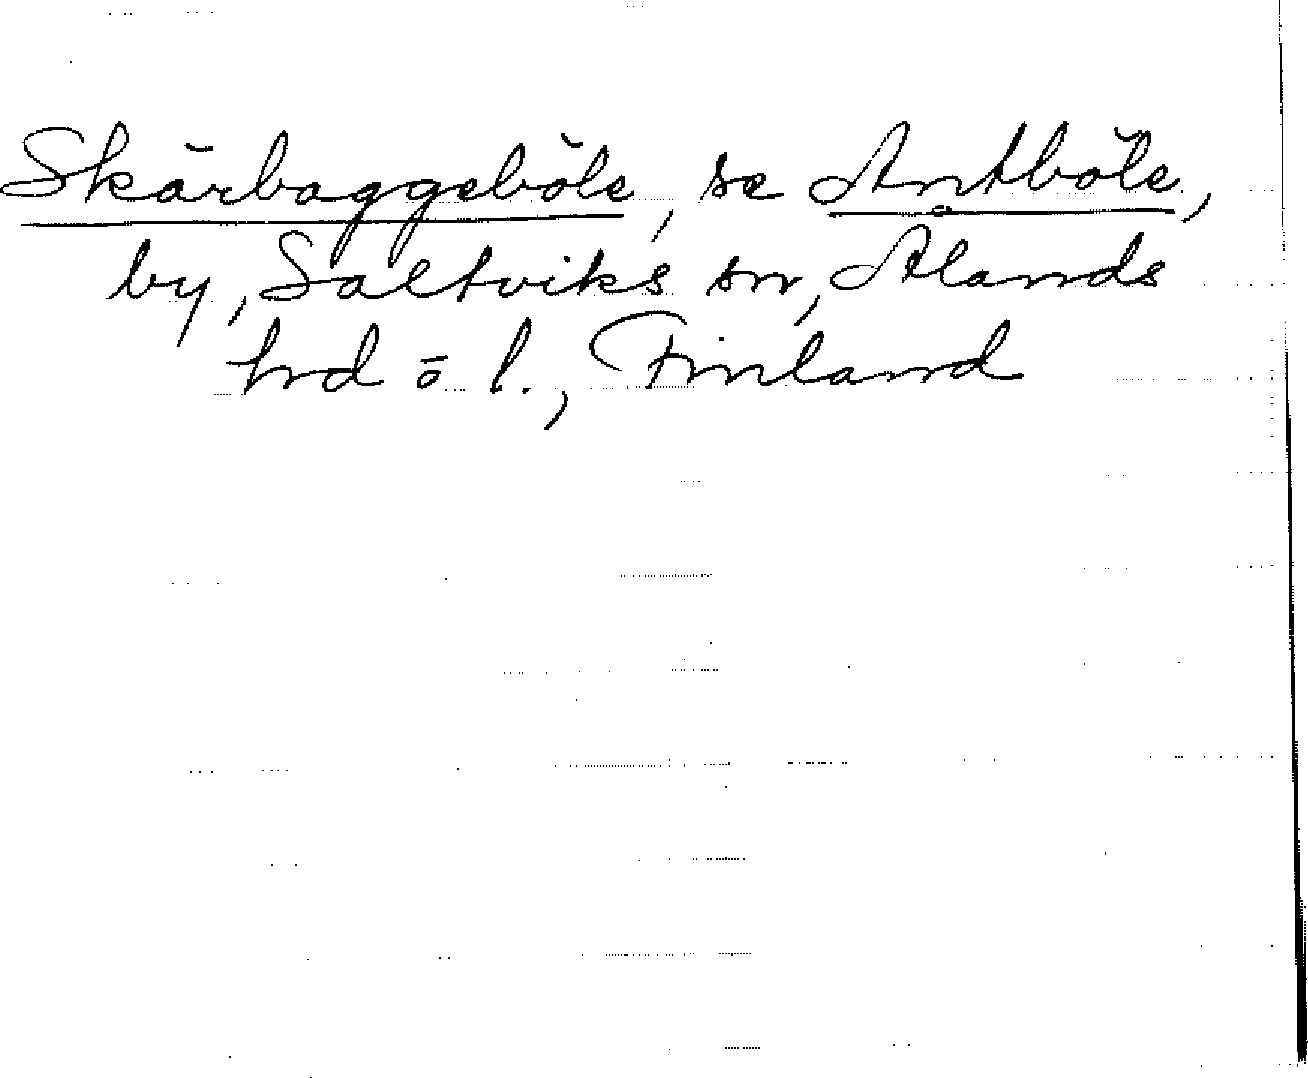 Skärbaggeböle, se Antböle,
by, Saltviks sn, Ålands
hrd o l., Finland